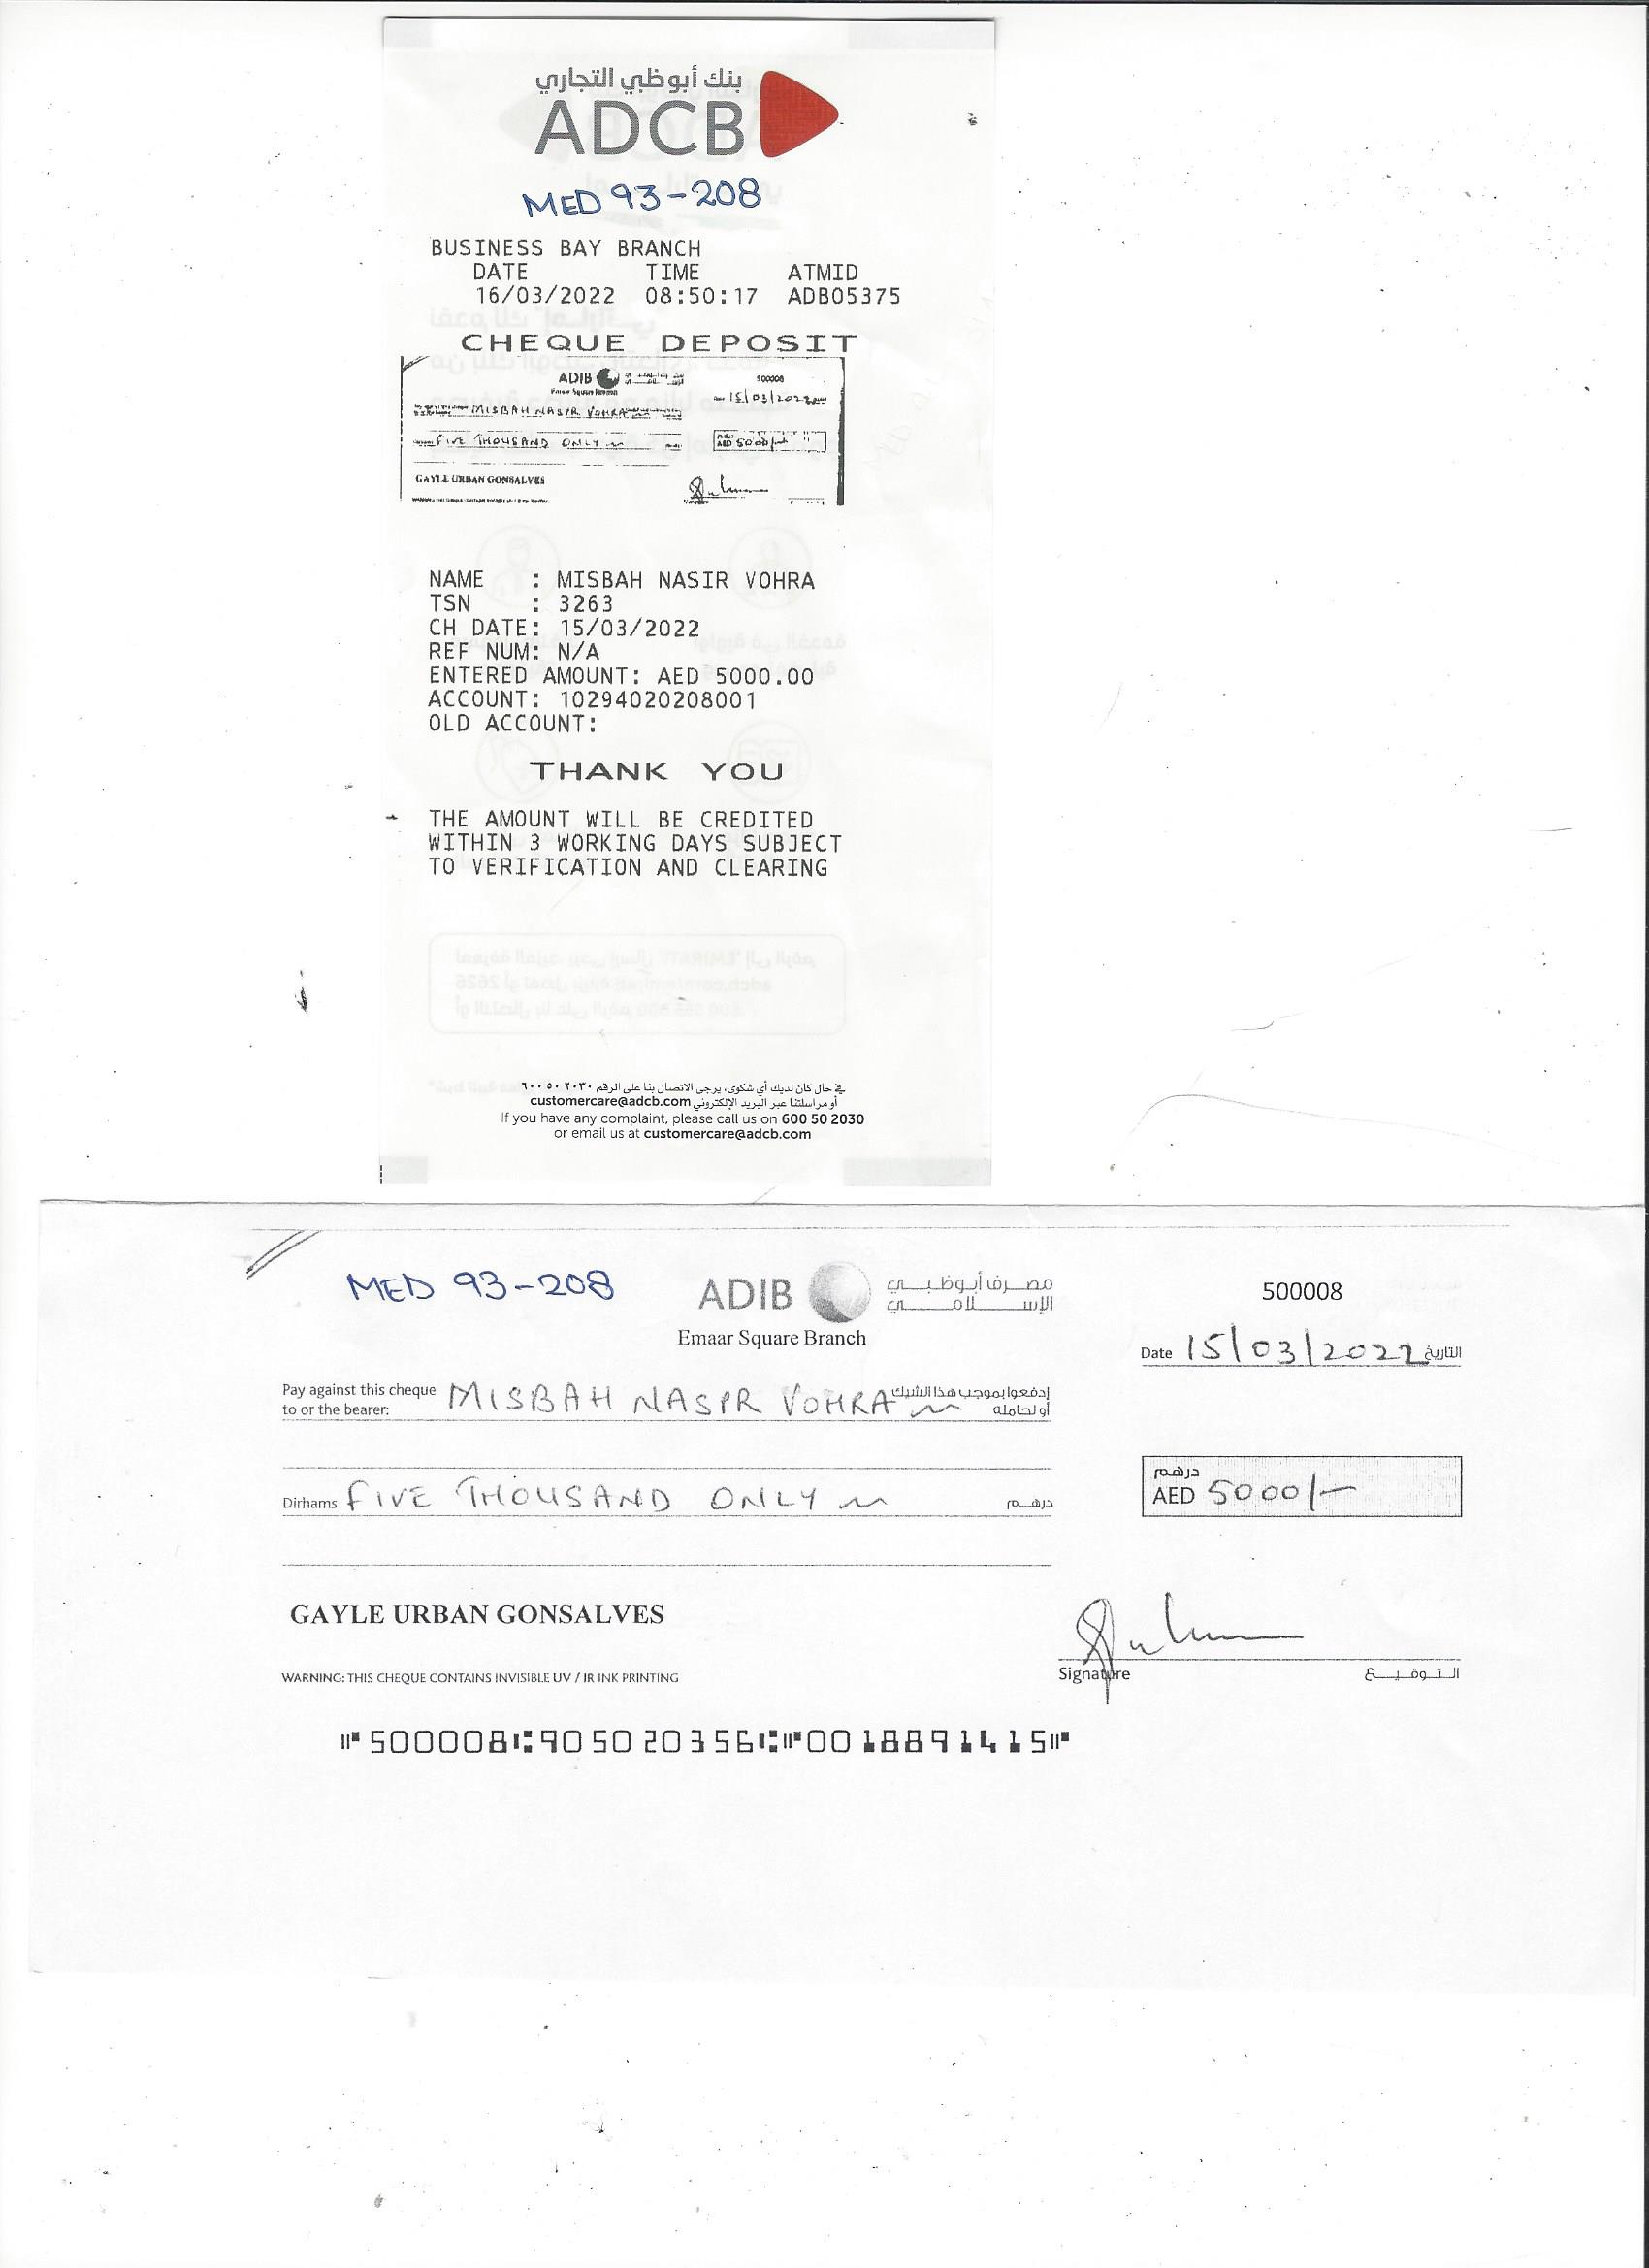 بنك أبوظبي التجاري
ADCB
MED 93-208
BUSINESS BAY BRANCH
DATE TIME ATMID
16/03/2022 08:50:17 ADB05375
CHEQUE DEPOSIT
ADIB
500008
Emaar Square Branch
15/03/2022
MISBAH NASIR VOHRA
FIVE THOUSAND ONLY
AED 5000/-
GAYLE URBAN GONSALVES
NAME : MISBAH NASIR VOHRA
TSN : 3263
CH DATE: 15/03/2022
REF NUM: N/A
ENTERED AMOUNT: AED 5000.00
ACCOUNT: 10294020208001
OLD ACCOUNT:
THANK YOU
THE AMOUNT WILL BE CREDITED
WITHIN 3 WORKING DAYS SUBJECT
TO VERIFICATION AND CLEARING
في حال كان لديك أي شكوى، يرجى الاتصال بنا على الرقم ٢٠٣٠ ٥٠ ٦٠٠
أو مراسلتنا عبر البريد الإلكتروني customercare@adcb.com
If you have any complaint, please call us on 600 50 2030
or email us at customercare@adcb.com
MED 93-208
ADIB مصرف أبوظبي الإسلامي
500008
Emaar Square Branch
Date 15/03/2022 التاريخ
Pay against this cheque to or the bearer: MISBAH NASIR VOHRA إدفعوا بموجب هذا الشيك أو لحامله
Dirhams FIVE THOUSAND ONLY درهم
درهم
AED 5000/-
GAYLE URBAN GONSALVES
Signature التوقيع
WARNING: THIS CHEQUE CONTAINS INVISIBLE UV / IR INK PRINTING
⑈500008⑆905020356⑆⑈0018891415⑈